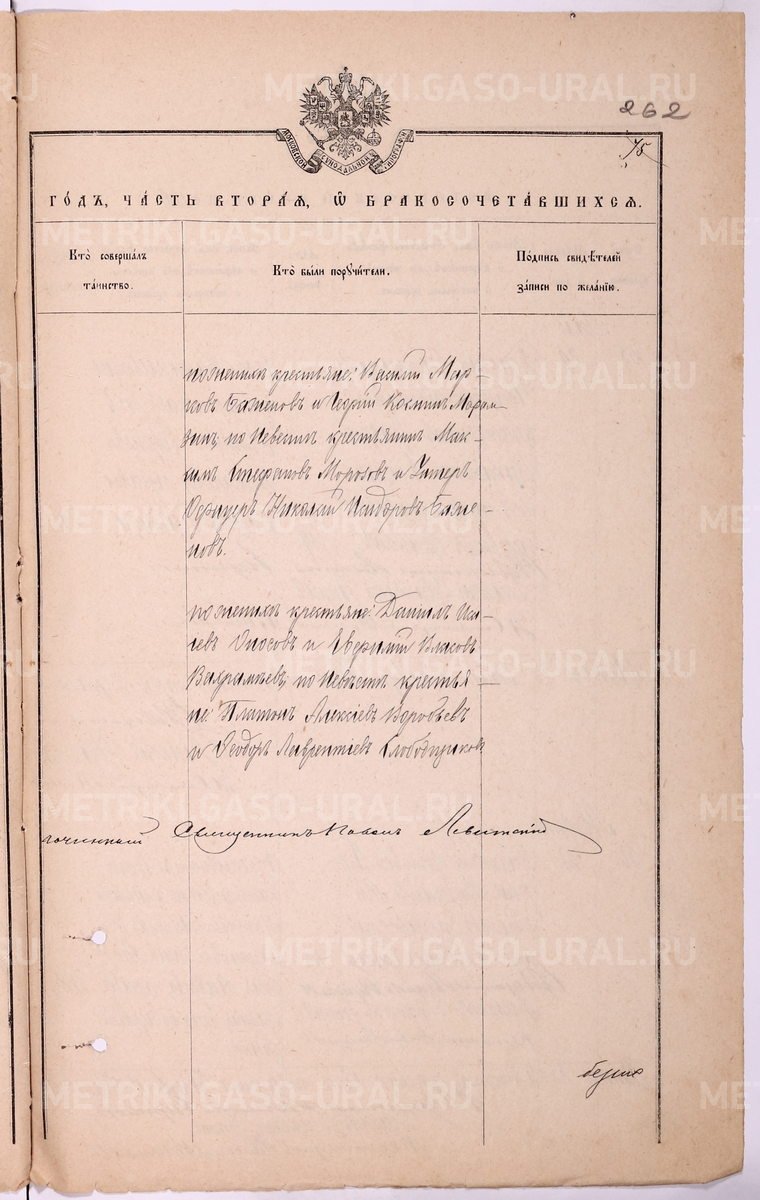 262
75
МОСКОВСКОЙ СѴНОДАЛЬНОЙ ТИПОГРАФІИ
ГО́ДЪ, ЧА́СТЬ ВТОРА́Я, Ѽ БРАКОСОЧЕТА́ВШИХСЯ.
Кто̀ совершáлъ
тáинство.
Кто̀ бы́ли порꙋчи́тели.
По́дпись свидѣ́телей
зáписи по желáнію.
по женихѣ крестьяне: Василій Мар-
ковъ Баженовъ и Козмин
по невестѣ крестьянинъ Мак-
симъ Стефановъ Морозовъ и Унтеръ
Офицеръ Николай Исидоровъ Баже-
новъ.
по женихѣ крестьяне: Даніилъ
Оносовъ и Евфимій Власовъ
Вахрамѣевъ; по невѣстѣ крестья-
не: Платонъ Алексіевъ Воробьевъ
и Ѳеодоръ Лаврентіевъ Слободчиковъ
Священникъ Павелъ Левитскій
METRIKI.GASO-URAL.RU